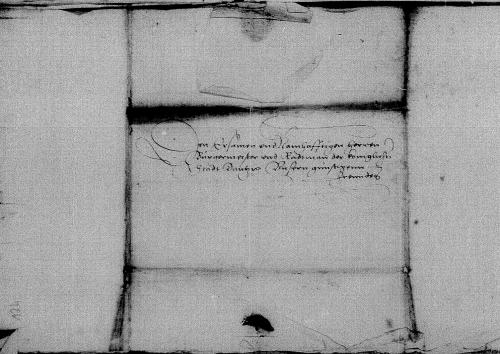 Den Ersamen vnd Namhafftigen Herren
Bürgermeister vnd Radtman der königlichen
Stadt Danntzig Unsern günstigenn
Freunden